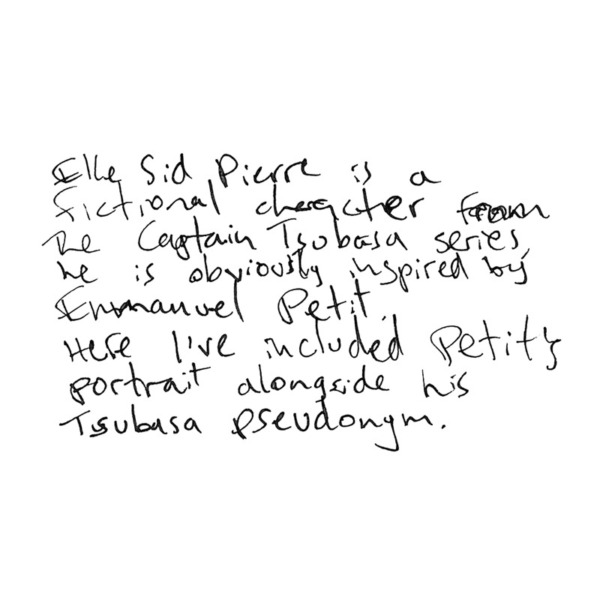 Elle Sid Pierre is a
fictional character from
the Captain Tsubasa series,
he is obviously inspired by
Emmanuel Petit.
Here I've included Petit's
portrait alongside his
Tsubasa pseudonym.